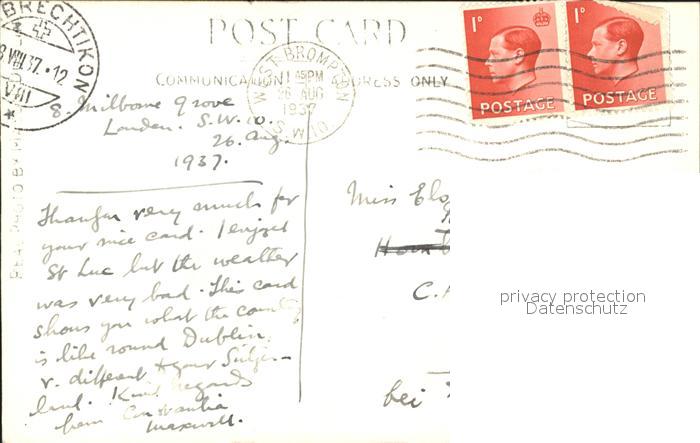 POST CARD
COMMUNICATION ADDRESS ONLY
BRECHTIKON
VIII 37. 12
WEST BROMPTON
1 45 PM
26 AUG
1937
S.W.10
1D
POSTAGE
1D
POSTAGE
REAL PHOTO BY
8. Milborne Grove
London. S.W.10.
26. Aug.
1937.
very much for
your nice card. I enjoyed
St Luc but the weather
was very bad. This card
shows you what the country
is like round Dublin,
v. different to your
land. Kind regards
from Constantia
Maxwell.
Miss
C.
bei
privacy protection
Datenschutz